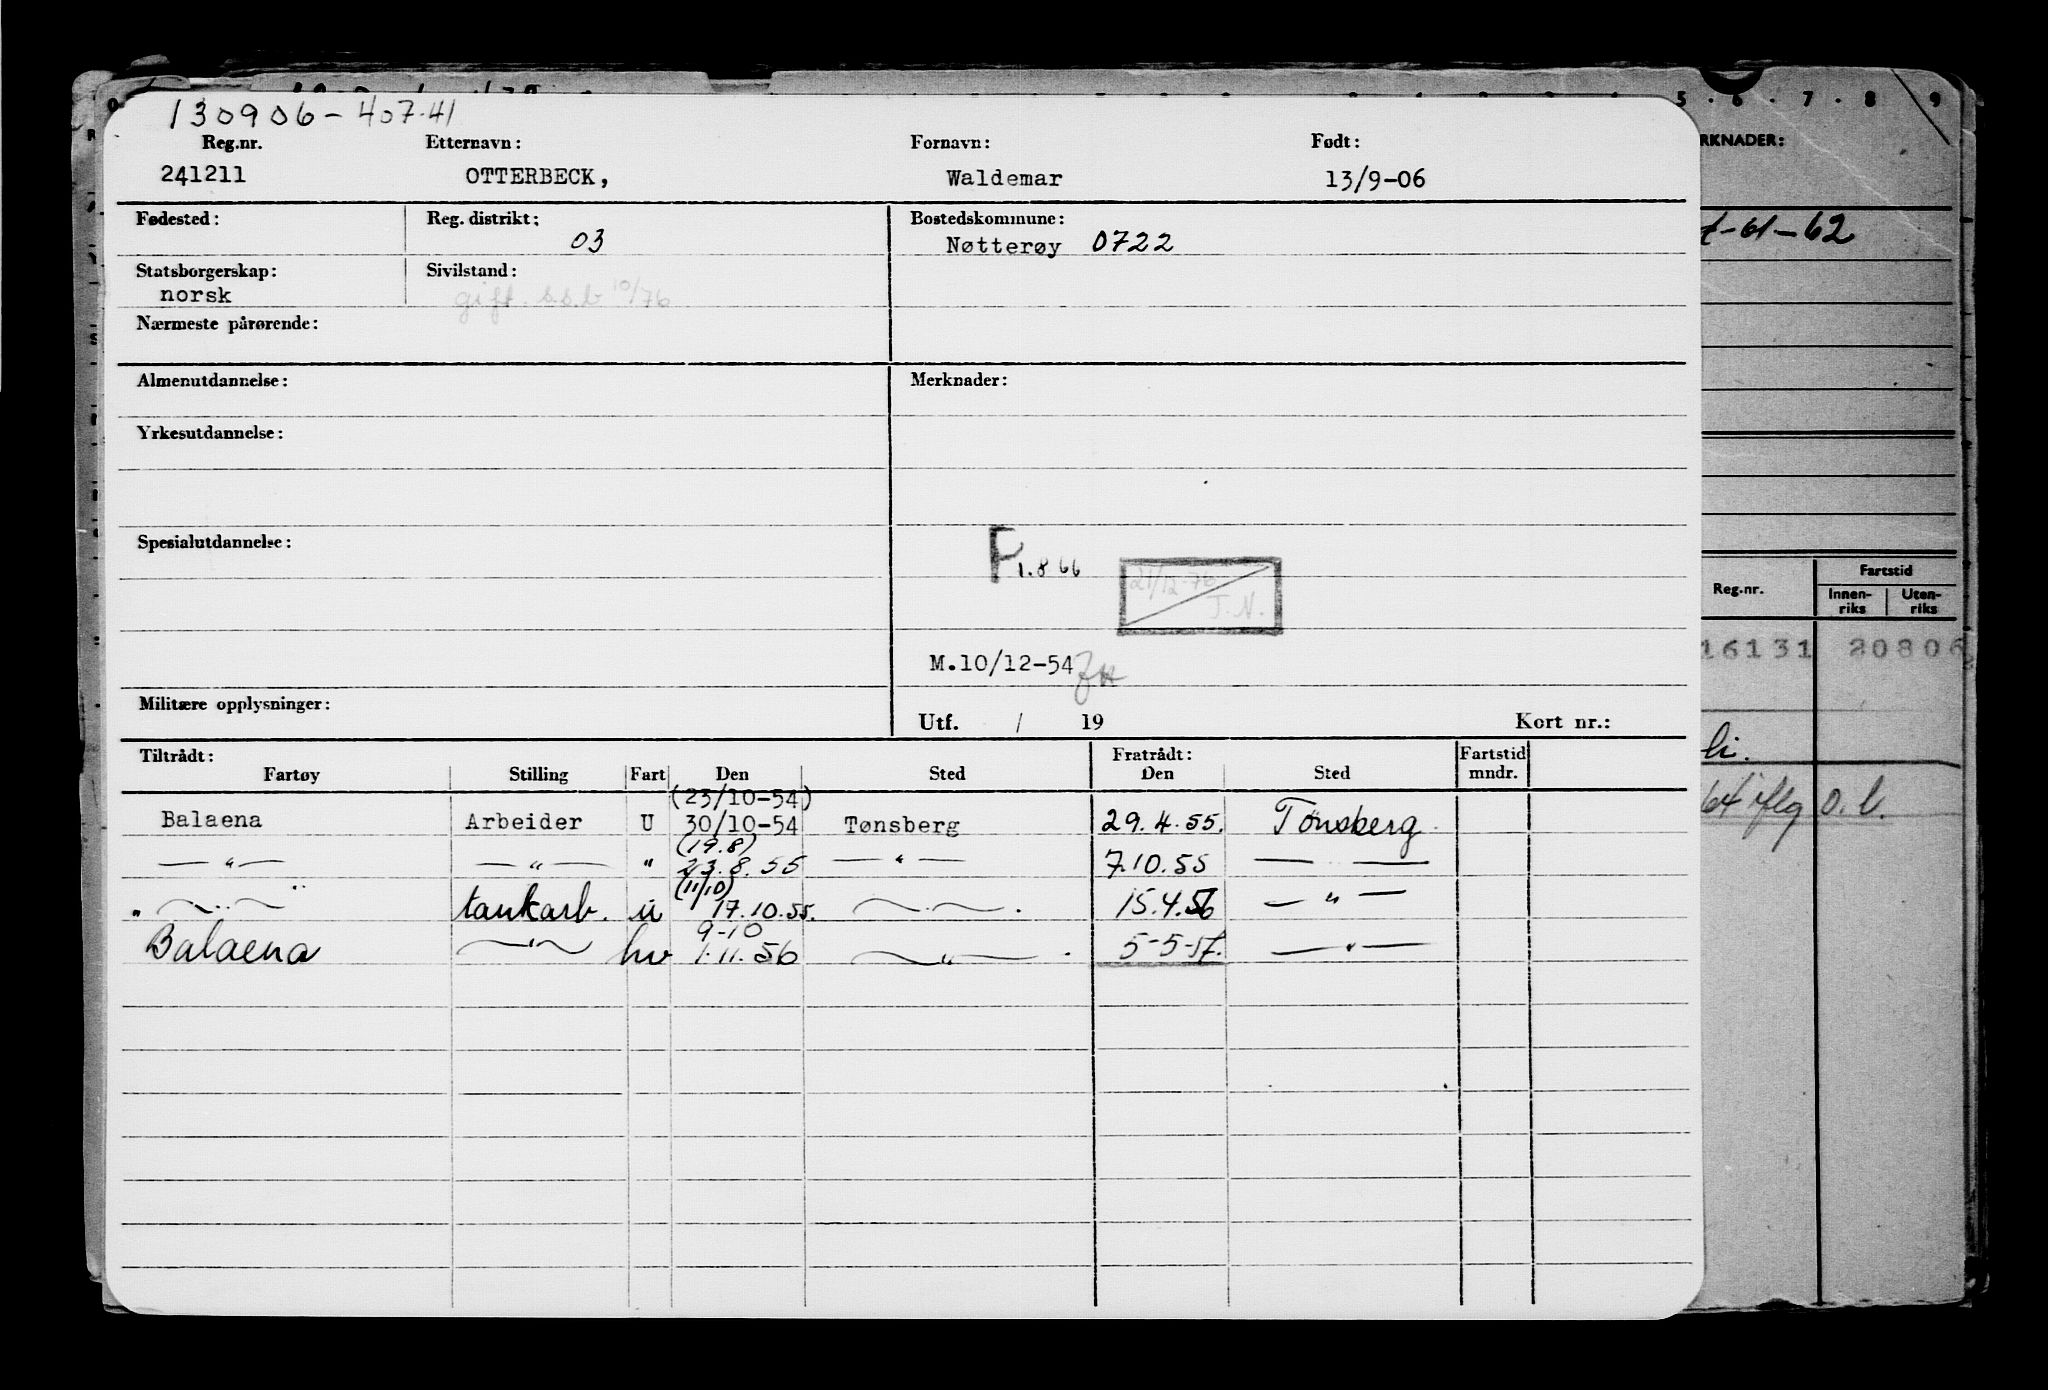 130906-407.41
Reg.nr. Etternavn: Fornavn: Født:
241211 OTTERBECK, Waldemar 13/9-06
Fødested: Reg. distrikt: Bostedskommune:
03 Nøtterøy 0722
Statsborgerskap: Sivilstand:
norsk gift. s.s.b 10/76
Nærmeste pårørende:
Almenutdannelse: Merknader:
Yrkesutdannelse:
Spesialutdannelse:
F 1.8 66
21/12-76
J.N.
M.10/12-54
Militære opplysninger: Utf. / 19 Kort nr.:
Tiltrådt: Fratrådt: Fartstid
Fartøy Stilling Fart Den Sted Den Sted mndr.
(23/10-54)
Balaena Arbeider U 30/10-54 Tønsberg 29.4.55. Tønsberg
(19.8)
—"— —"— " 23.8.55 —"— 7.10.55 — —
(11/10)
" —..— tankarb. u 17.10.55. —..— . 15.4.56 —"—
9-10
Balaena —"— hv 1.11.56 —"— . 5-5-57. —"—
5 . 6 . 7 . 8 9
RKNADER:
-61-62
Reg.nr. Fartstid
Innen- Uten-
riks riks
16131 20806
li.
64 iflg o.l.